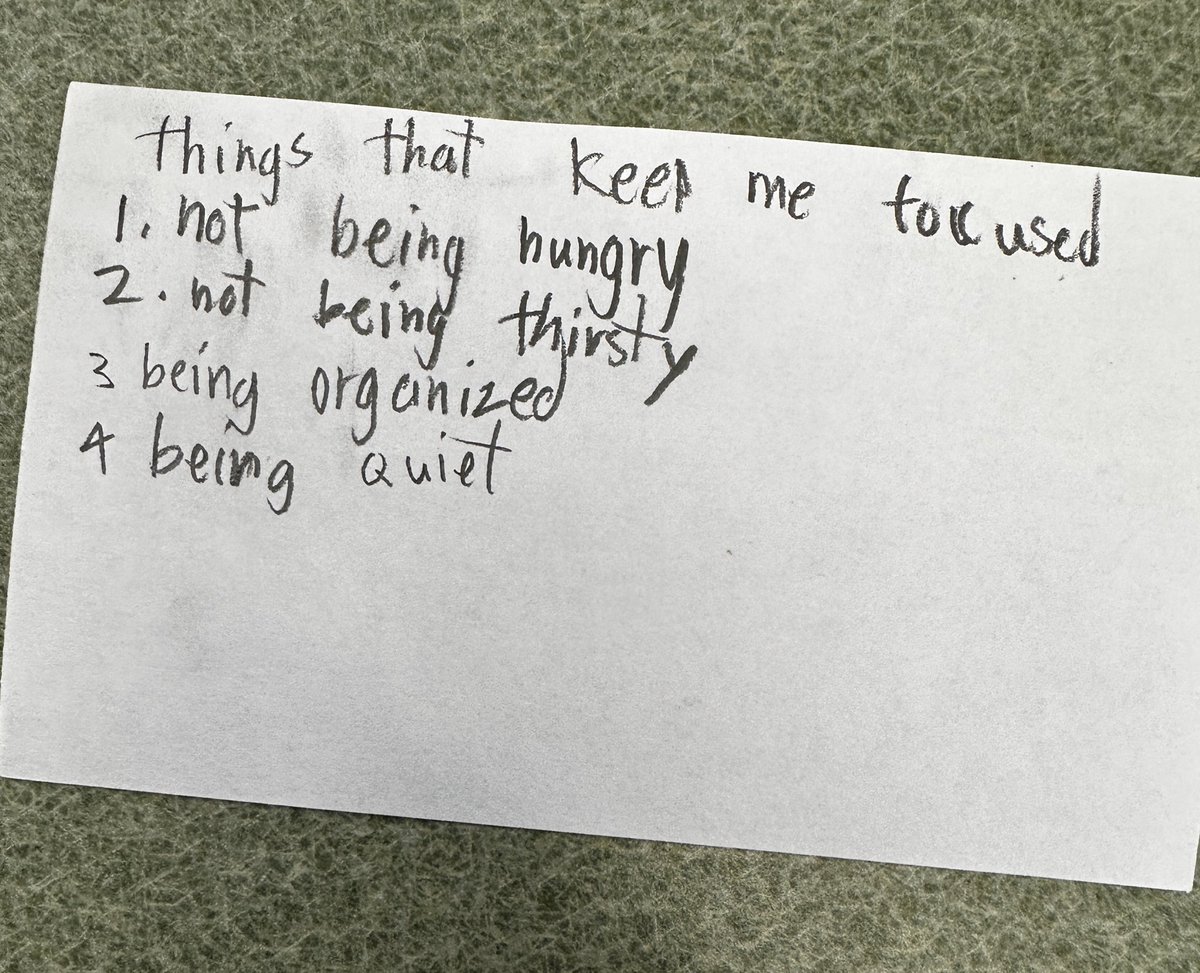 things that keep me focused
1. not being hungry
2. not being thirsty
3 being organized
4 being quiet